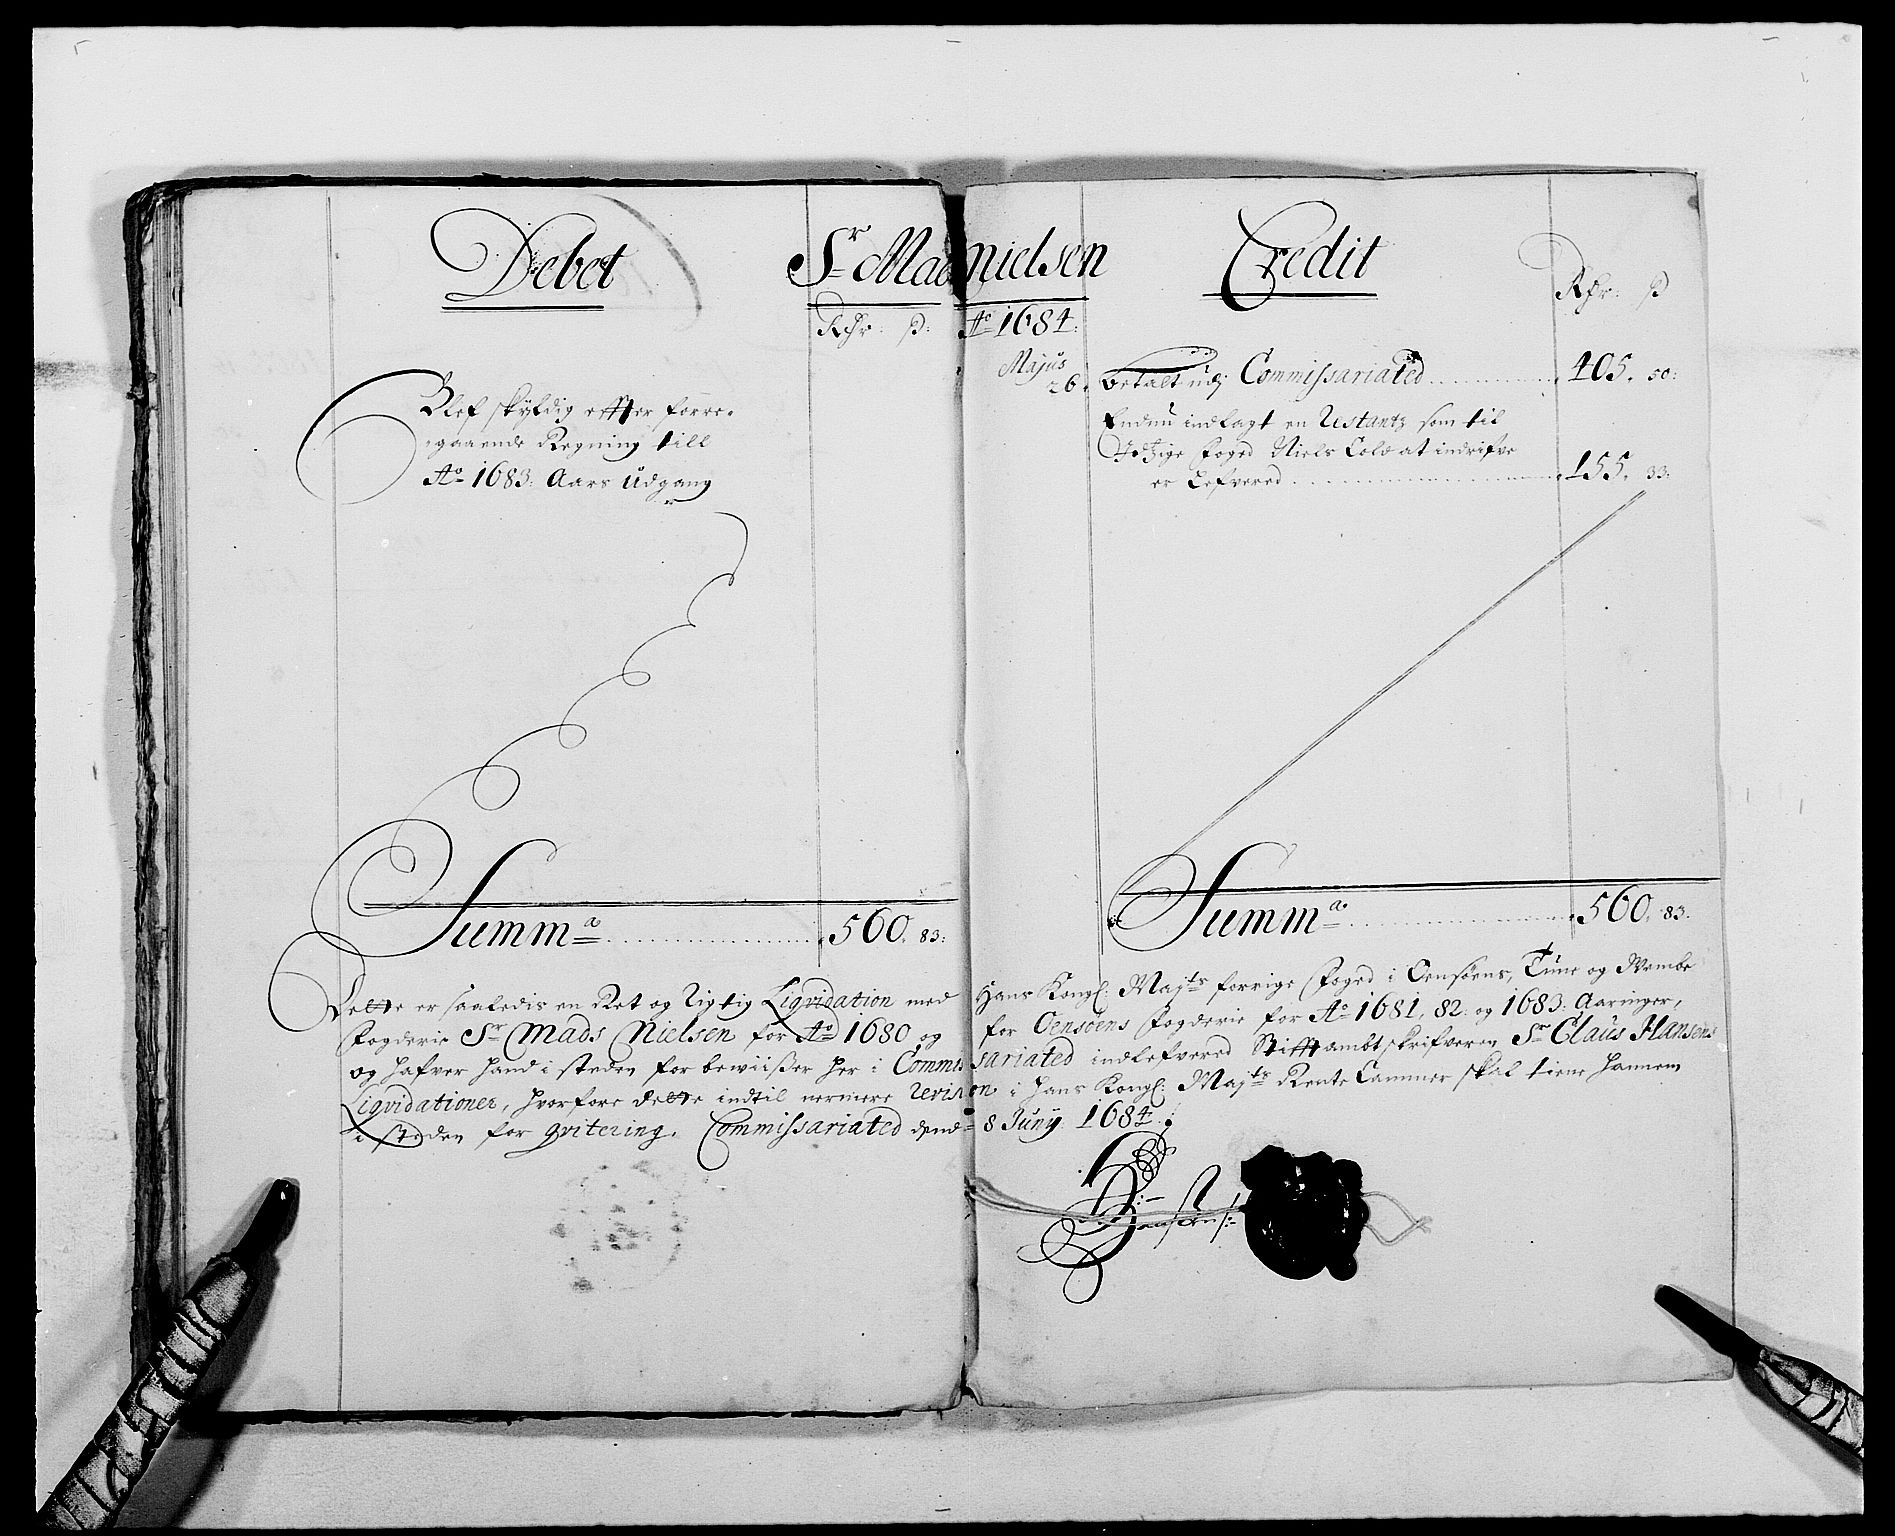 Debet Sr Mads Nielsen Credit
Rdr: ß: Ao 1684. Rdr: ß
Blef skyldig effter forre-
gaaende Regning till
Ao 1683. Aars Udgang
Majus
26. betalt udj Commissariated 405. 50:
Endnu indlagt en Restantz som til
Itzige foged Niels Cold at indrifve
er Lefvered 155. 33:
Summa 560. 83:
Summa 560. 83:
Dette er saaledis en Ret og Rigtig Liqvidation med Hans Kongl: Majts forrige foged i Oensøens, Tune og Wembe
fogderie Sr Mads Nielsen for Ao 1680 og for Oensøens fogderie for Ao 1681, 82: og 1683: Aaringer,
og hafver hand i steden for beviißer her i Commissariated indlefvered Stifftambtskrifveren Sr Claus Hansens
Liqvidationer, hvorfore dette indtil nermere Revision i Hans Kongl: Majts Rente Cammer skal tiene hannem
i steden for qvitering. Commissariated dend 8 Junij 1684.